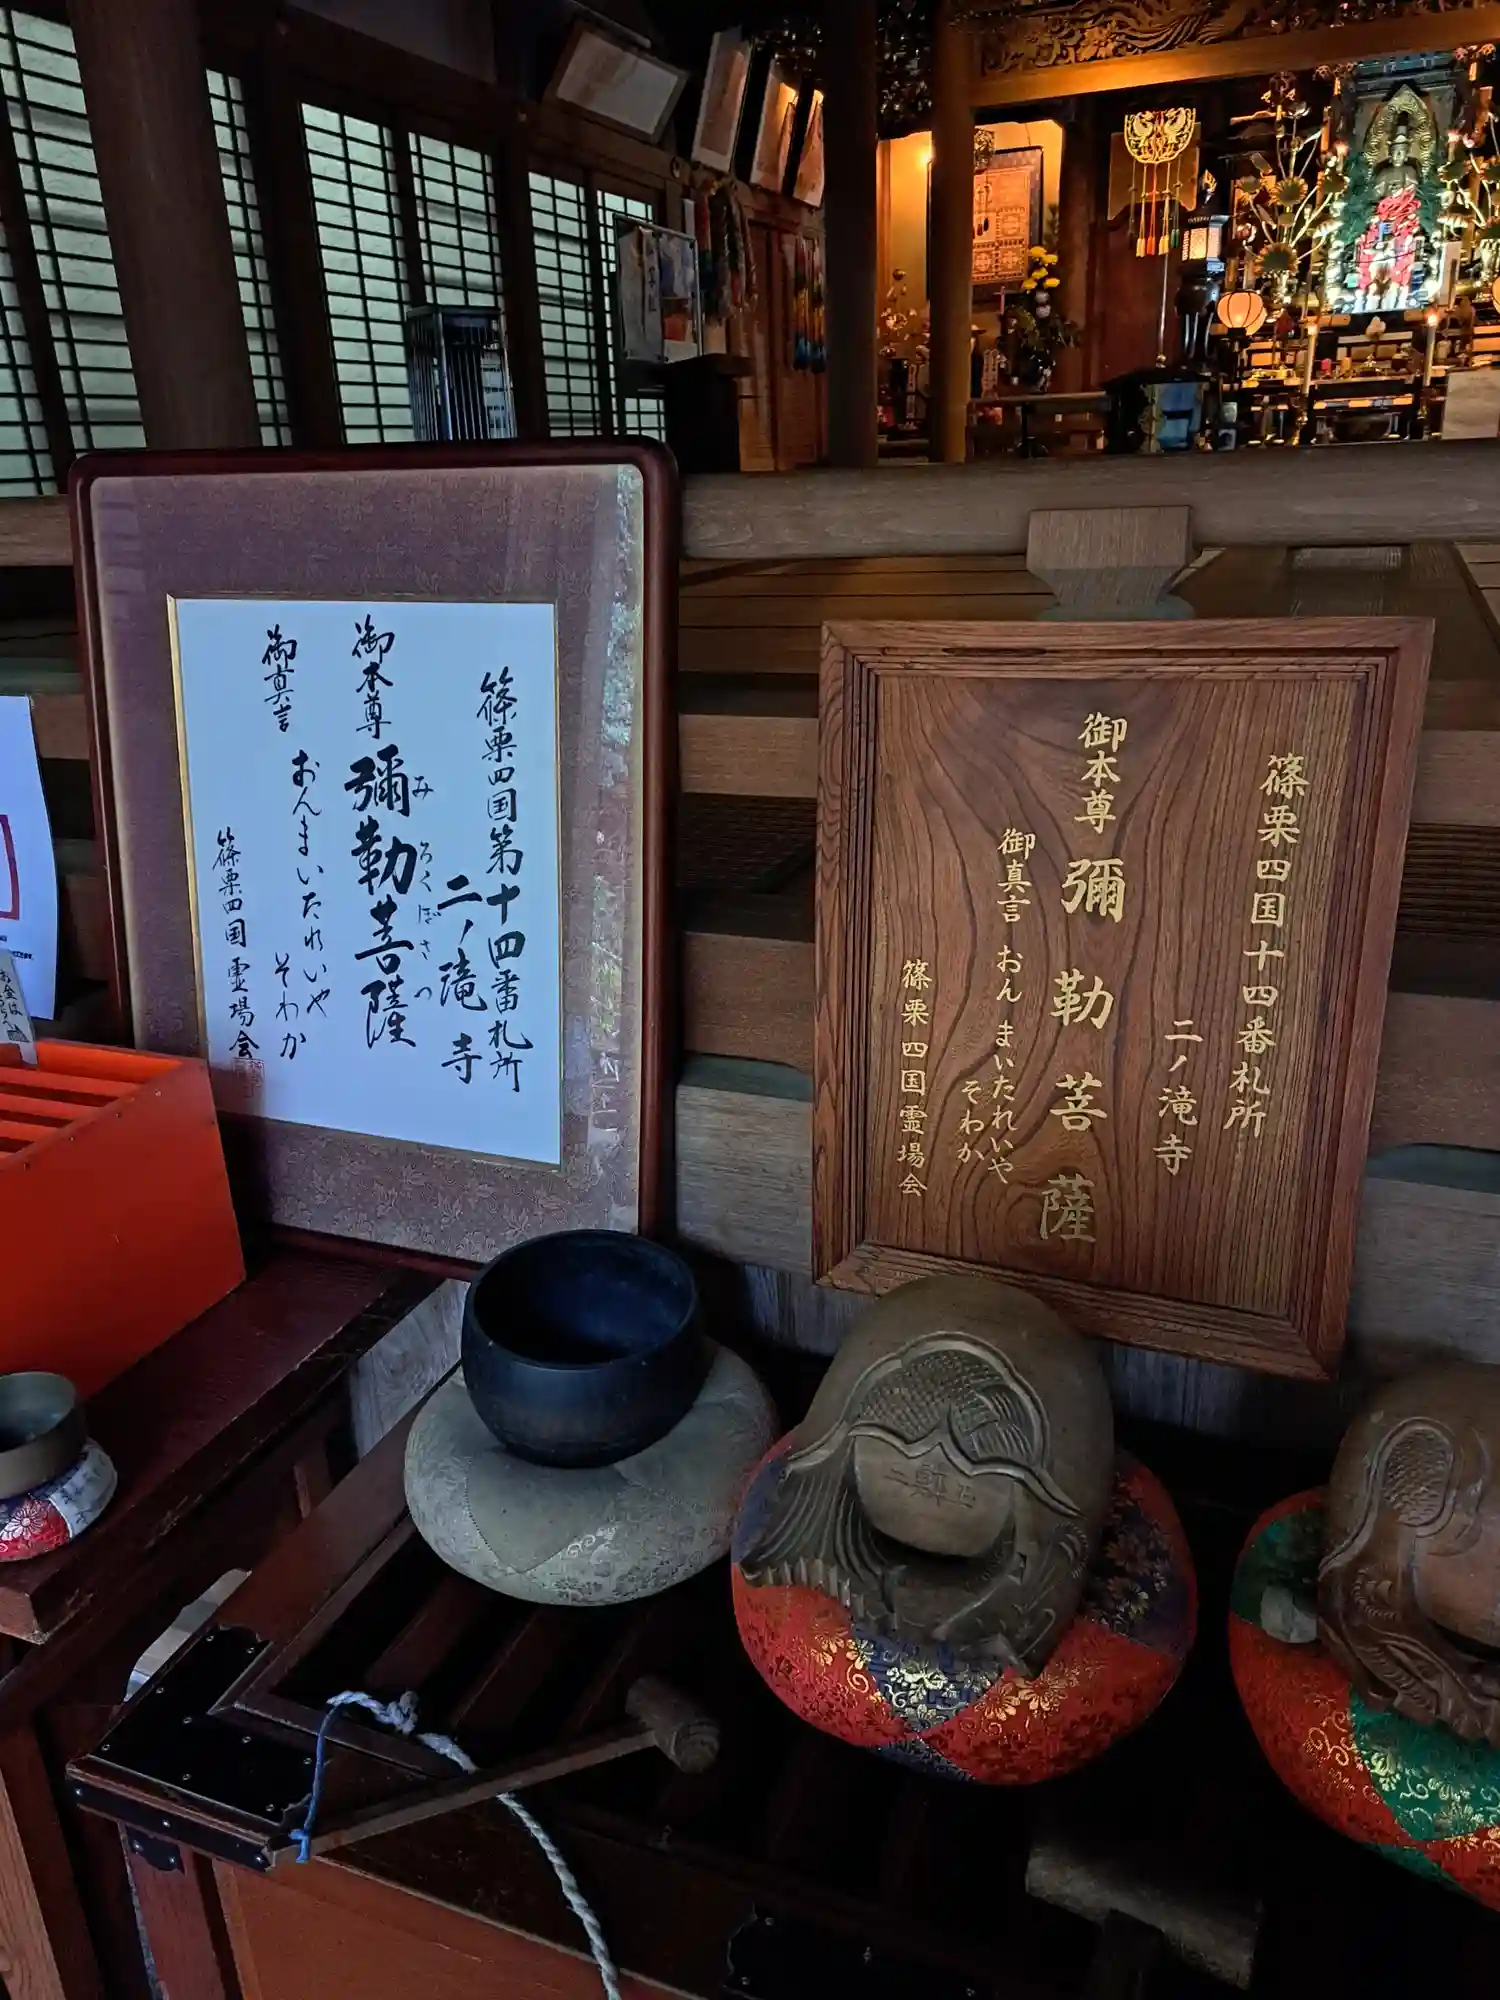 篠栗四国第十四番札所
二ノ滝寺
御本尊 彌勒菩薩
みろくぼさつ
御真言 おんまいたれいや
そわか
篠栗四国霊場会
篠栗四国十四番札所
二ノ滝寺
御本尊 彌勒菩薩
御真言 おん まいたれいや
そわか
篠栗四国霊場会
お金は